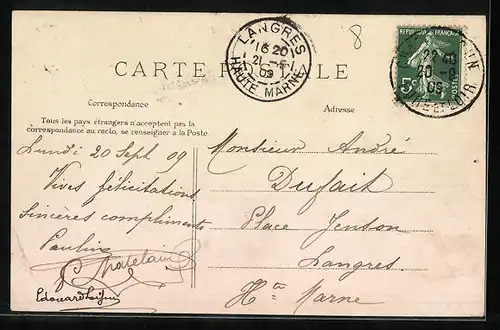 LANGRES
16 20
21 -9
09
HAUTE MARNE
8
REPUBLIQUE FRANÇAISE
5c
22 40
20 -9
09
EURE-ET-LOIR
CARTE POSTALE
Correspondance
Adresse
Tous les pays étrangers n'acceptent pas la
correspondance au recto, se renseigner à la Poste
Lundi 20 Sept 09
Vives félicitations
Sincères compliments
Pauline
Chatelain
Edouard
Monsieur André
Dufait
Place Jenson
Langres
Hte Marne